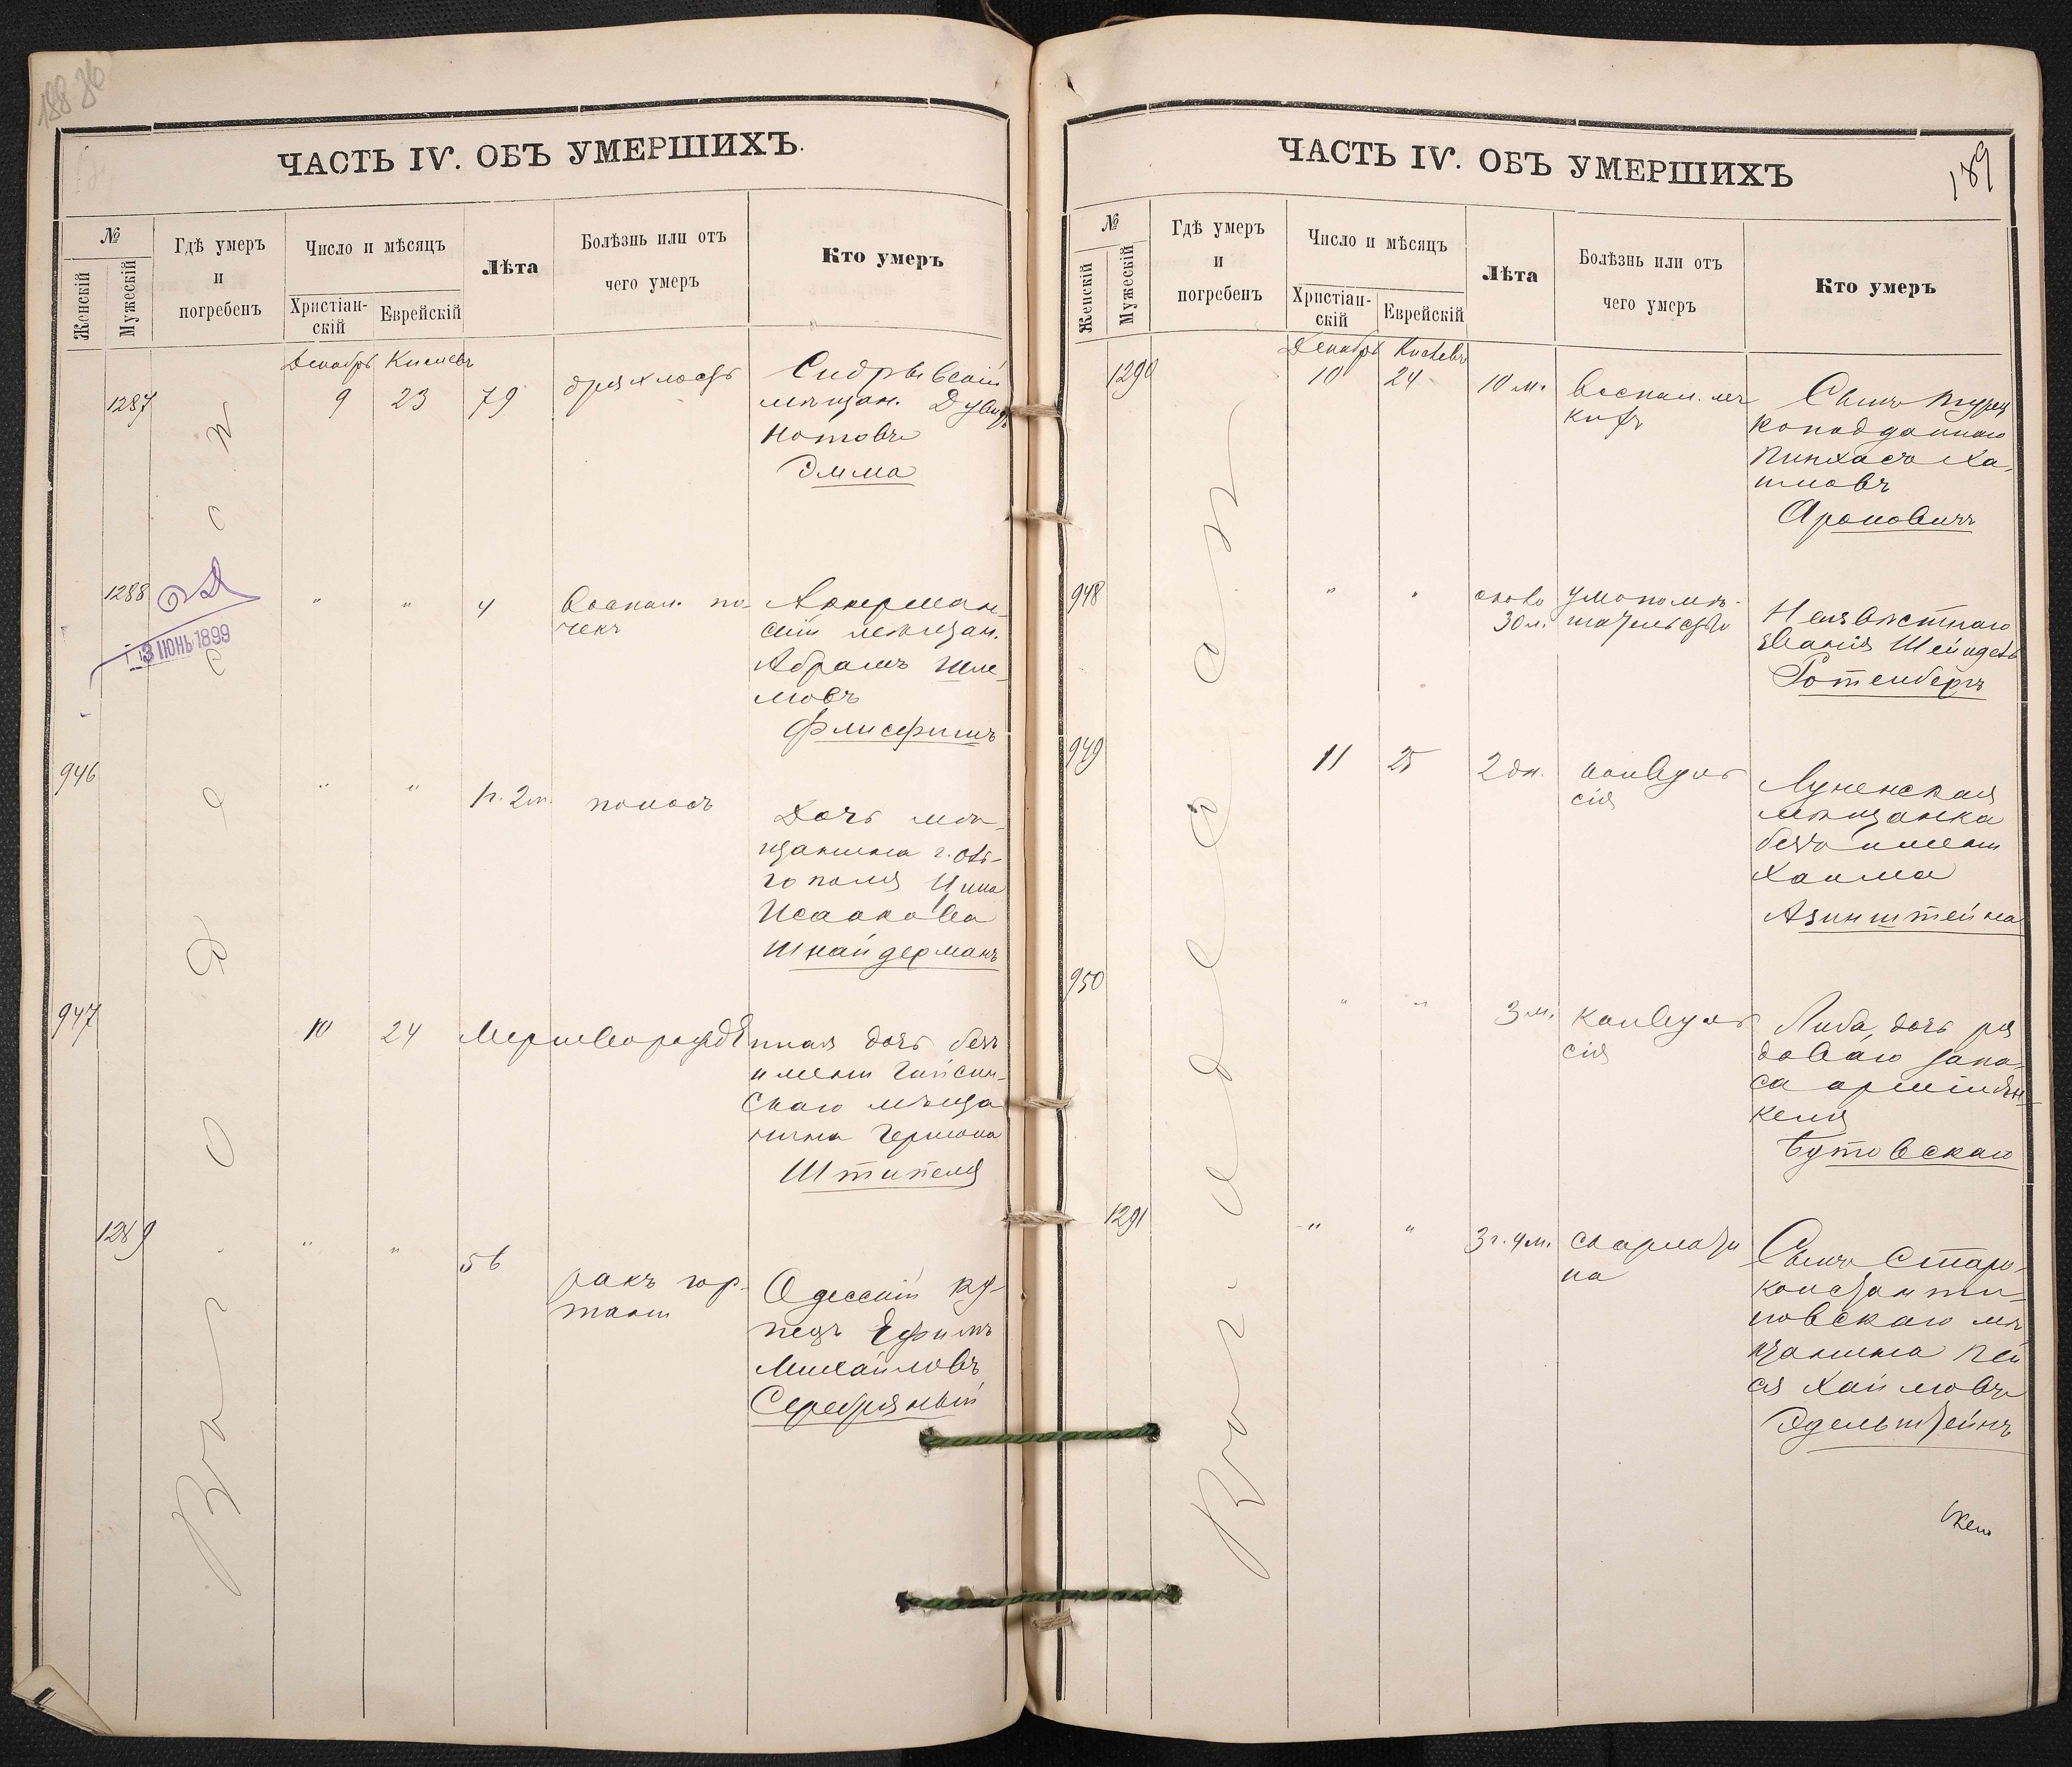 188
ЧАСТЬ IV. ОБЪ УМЕРШИХЪ.
№
Женскій
Мужескій
Гдѣ умеръ
и
погребенъ
Число и мѣсяцъ
Христіан-
скій
Еврейскій
Лѣта
Болѣзнь или отъ
чего умеръ
Кто умеръ
Декабрь Кислевъ
1287
9 23 79 дряхлость
мѣщан. Дувидъ
Нотовъ
Эмма
1288 " " 4 Воспал. по-
чекъ
Аккерман-
скій мѣщан.
Абрамъ Шле-
мовъ
Флисфишъ
3 ІЮНЬ 1899
946 " " 1г. 2м. поносъ
Дочь мѣ-
щанина г. Оль-
гополя Ципа
Исаакова
Шнайдерманъ
947 10 24 Мертворожденная дочь безъ
имени Гайсин-
скаго мѣща
нина Гершона
Штипеля
1289 " " 56 ракъ гор-
тани
Одесскій ку-
пецъ Ефимъ
Михайловъ
Серебряный
Въ г. Одессѣ
ЧАСТЬ IV. ОБЪ УМЕРШИХЪ
189
№
Женскій
Мужескій
Гдѣ умеръ
и
погребенъ
Число и мѣсяцъ
Христіан-
скій
Еврейскій
Лѣта
Болѣзнь или отъ
чего умеръ
Кто умеръ
Декабрь Кислевъ
1290 10 24 10 м. Воспал. лег
кихъ
Сынъ турец
коподданнаго
Пинхаса Ха-
имовъ
Ароновичъ
948 " " около
30 л. умопомѣ-
шательство
Неизвѣстнаго
званія Шейндель
Ротенбергъ
949 11 25 2 дн. конвуль
сія
Луненская
мѣщанка
безъ имени
Хаима
Азинштейна
950 " " 3 м. конвуль
сія
Либа, дочь ря
доваго запа-
са арміи Ян-
келя
Бутовскаго
1291 " " 3 г. 4 м. скарлати
на
Сынъ Старо-
константи-
новскаго мѣ
щанина Пей
ся Хаимовъ
Эдельштейнъ
Въ г. Одессѣ